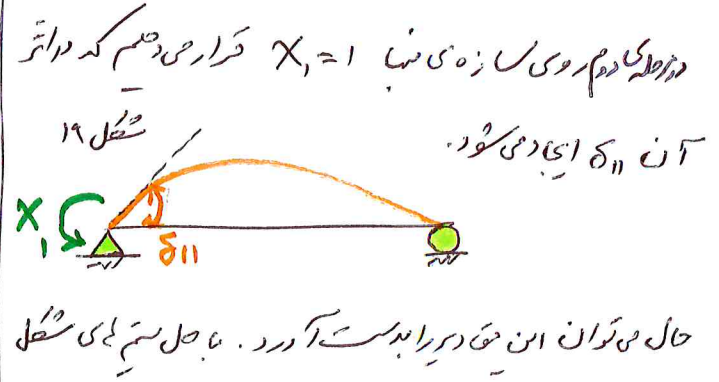 در مرحله‌ی دوم روی سازه‌ی مبنا X₁=1 قرار می‌دهیم که در اثر
آن δ₁₁ ایجاد می‌شود.
شکل ۱۹
X₁
δ₁₁
حال می‌توان این مقادیر را بدست آورد. با حل تیرهای شکل